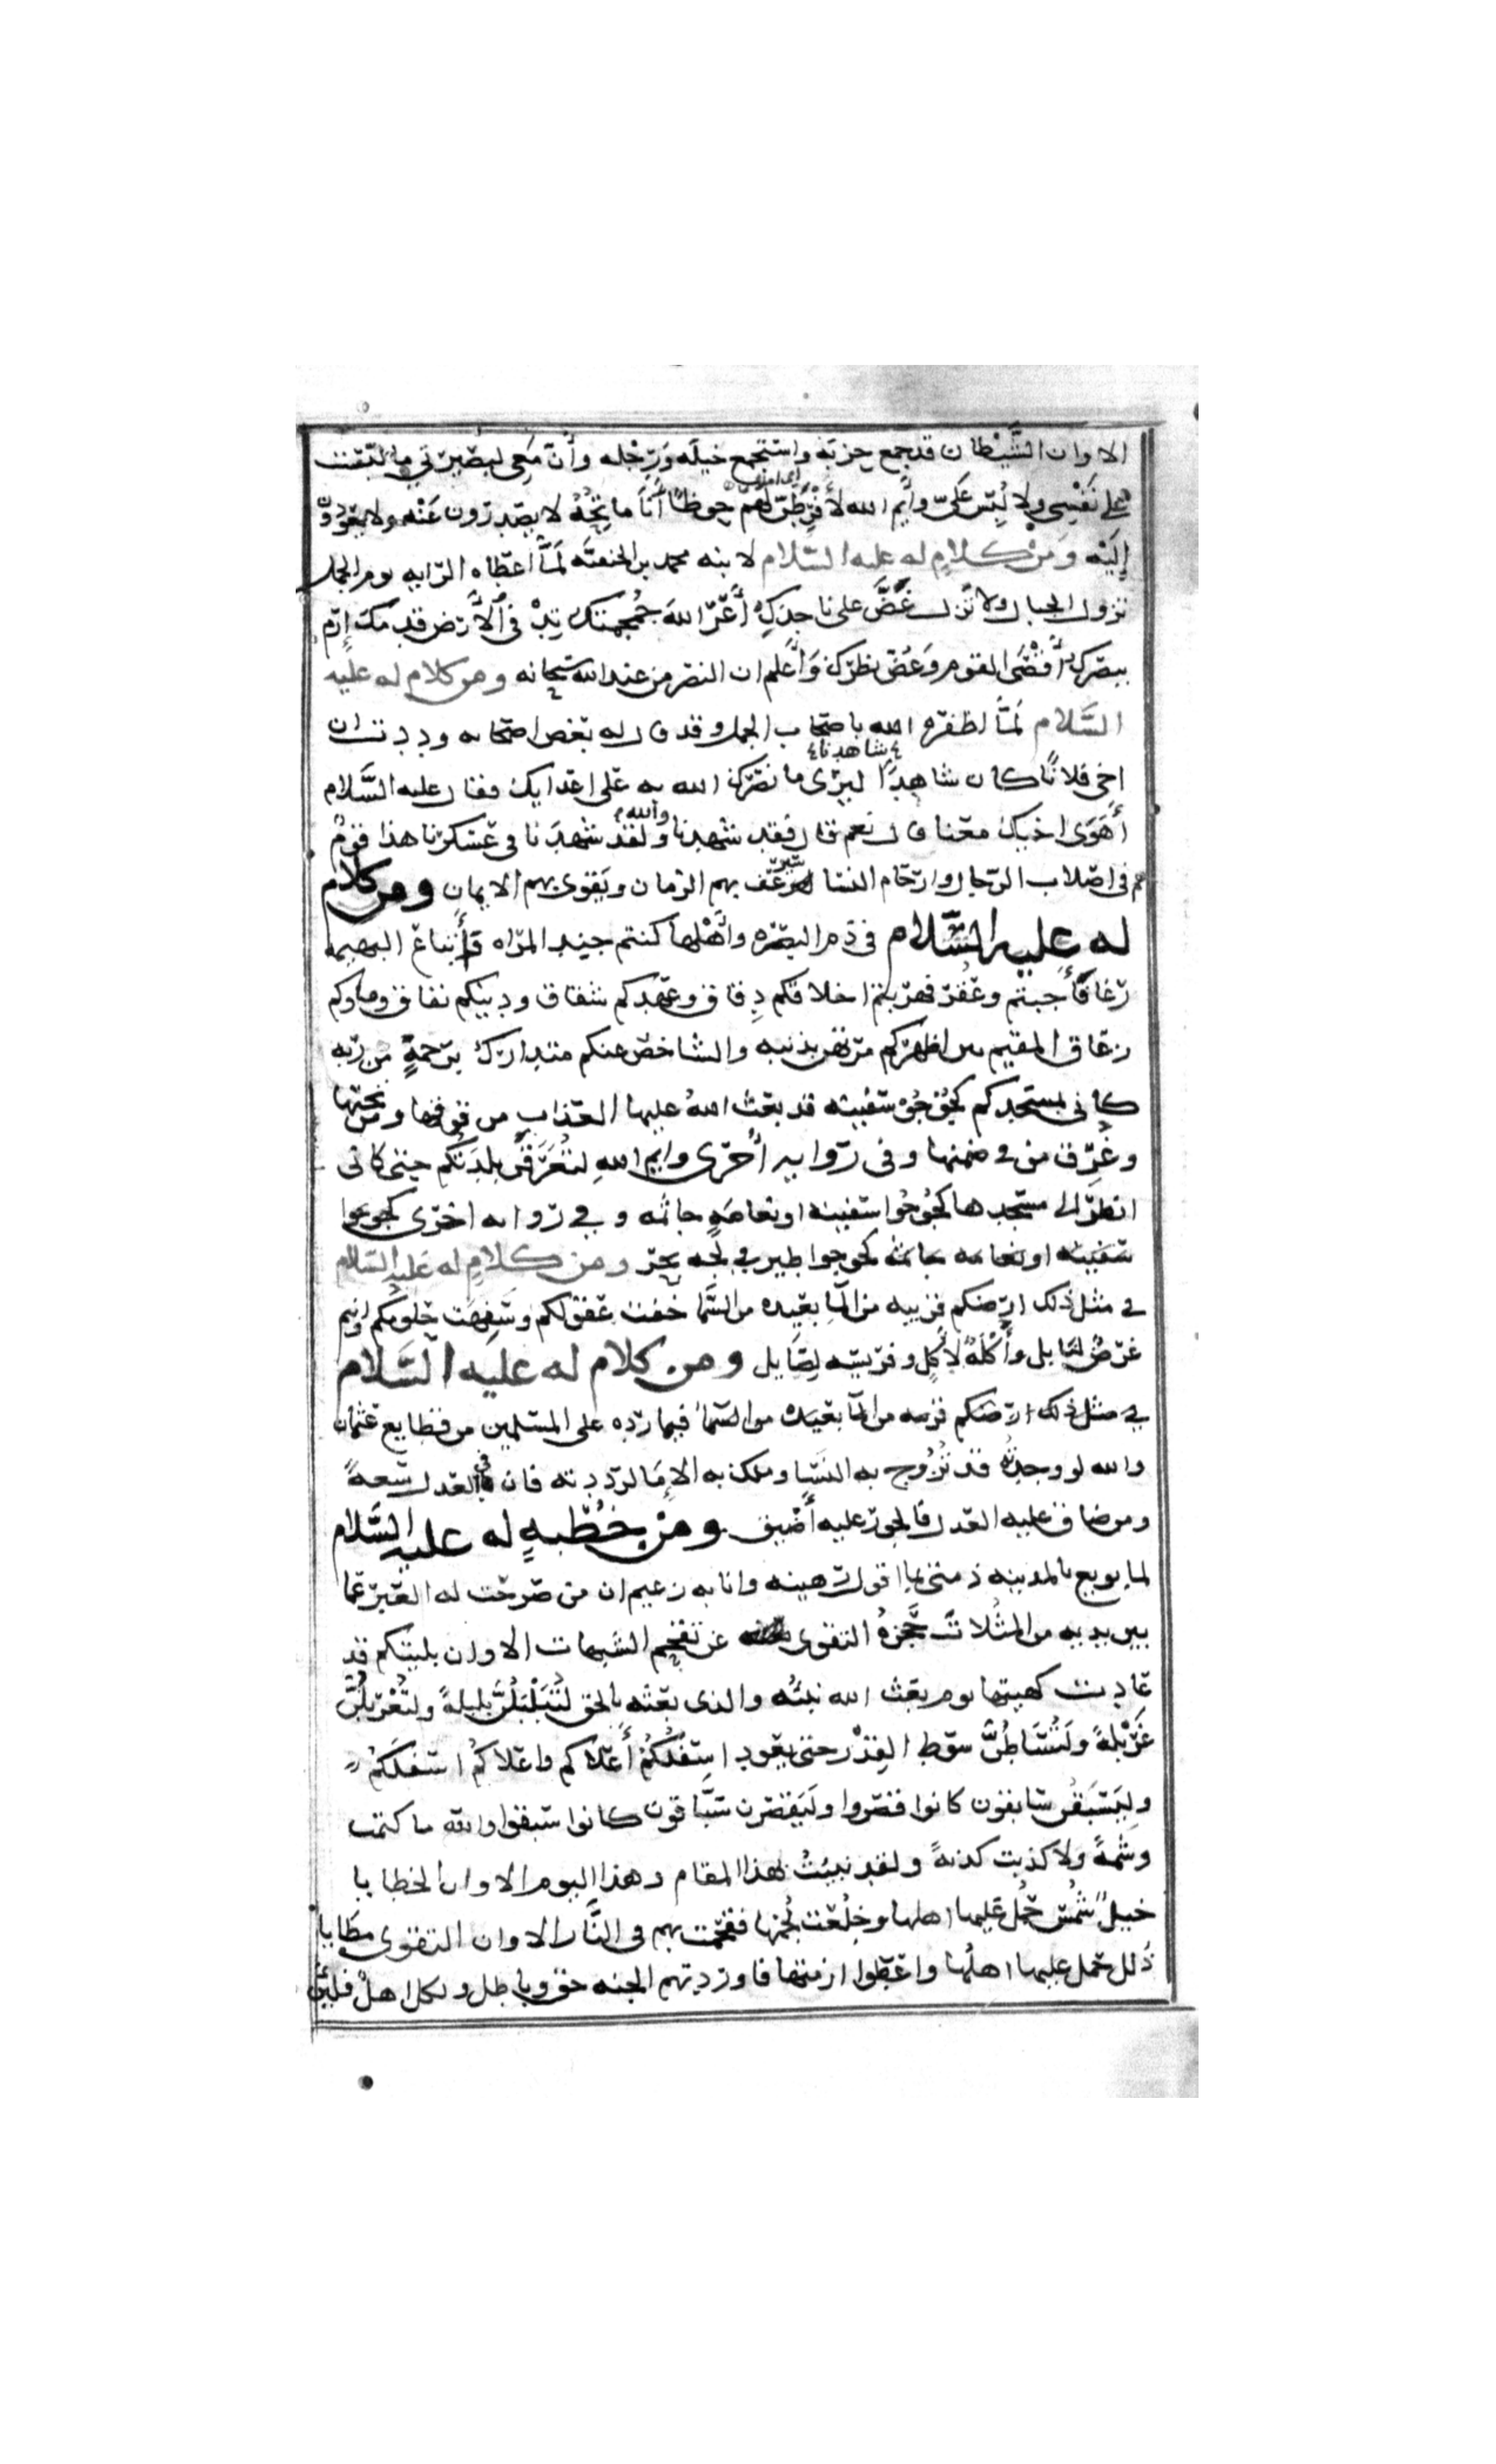 الا وان الشَّيْطان قد جمع حِزبَه واستجمع خيلَه وَرَجْله وأنّ مَعِى لبصيرتي ما لبّست
على نَفْسِى ولا لُبِّس عَلَىّ وأيم الله لأُفْرِطَنّ لَهُمْ حوضًا أنا ماتِحُهُ لا يصدرون عَنْه ولا يعودون
إِلَيْه وَمِنْ كلامٍ له عليه السّلام لابنه محمد بن الحنفيّه لَمَّا اعطاه الرّايه يوم الجمل
تزول الجبال ولا تزل عَضَّ على ناجذِكِ أَعِرِ اللهَ جُمْجُمَتك تِدْ في الأرض قدمك إرْم
ببصرك أَقْصَى القوم وَغُضّ بظرك وَاعلم ان النصر من عند الله سبحانه ومن كلام له عليه
السَّلام لَمَّا اظفره الله باصحاب الجمل وقد قال له بعض اصحابه وددت ان
شاهدنا
اخى فلانًا كان شاهِدًا ليرى ما نصرك الله به على اعدايك فقال عليه السَّلام
أَهَوَى اخيك معنا قال نعم قال فقد شهدنا والله ولقد شهدَنا في عسكرنا هذا قومٌ
هم في اصلاب الرّجال وارحام النسا سيرعَف بهم الزمان ويَقوى بهم الايمان ومن كلام
له عليه السَّلام في ذم البصره وأهْلها كنتم جند المراه وأتباع البهيمه
رغا فأجبتم وعُقِر فهربتم اخلاقكم دِقاق وعهدكم شقاق ودينكم نفاق وماوكم
زعاق المقيم بين اظهركم مرتهن بذنبه والشاخص عنكم متدارك برحمةٍ من ربه
كانى بمسجدكم كجُؤجُؤ سفينه قد بعث اللهُ عليها العذاب من فوقها ومن تحتها
وغَرِق من في ضمنها وفى روايه أُخرى وايم اللهِ لتُغرَقَنَّ بلدتكم حتى كانى
انظر الى مسجدها كجُؤجُؤا سفينه او نعامَهٍ جاثمه وفي روايه اخرى كجؤجوا
سفينه او نعامه جاثمه كجوجوا طير في لجه بحر ومن كلامٍ له عليه السّلام
في مثل ذلك ارضكم قريبه من المآ بعيده من السَّما خفت عقولكم وسَفِهَت حلومكم فانتم
غرضٌ لنابل وأُكلةٌ لآكِل وفريسَه لِصَايل ومن كلام له عليه السَّلام
في مثل ذلك ارضكم قريبه من المآ بعيده من السّمآ فيما ردّه على المسلمين من قطايع عثمان
والله لو وجدتُه قد تُزُوج به النسَا وملك به الإمَا لرددته فان في العدل سَعةً
ومن ضاق عليه العدل فالجور عليه أَضْيق ومن خُطبهٍ له عليه السَّلام
لما بويع بالمدينه ذمتى بما اقول رهينه وانا به زعيم ان من صرحت له العبر عما
بين يديه من المثُلات حَجزهُ التقوى عن تقحم الشبهات الا وان بليتكم قد
عادت كهيئتها يوم بعث الله نبيّه والذى بعثه بالحق لتُبَلْبَلُنَّ بلبلةً ولتُغربلُنَّ
غَرْبلةً ولَتُسَاطُنَّ سوط القِدْر حتى يعود اسفلُكُمْ أعلاكم واعلاكُمْ اسفلَكُمْ
وليَسبَقن سابقون كانوا قصّروا ولَيَقصرن سَبَّاقون كانوا سَبقوا والله ما كتمت
وشمةً ولا كذبت كذبةً ولقد نبيتُ بهذا المقام وهذا اليوم الا وان الخطايا
خيلٌ شُمُسٌ حُمِل عليها اهلها وخُلِعت لُجُمها فتقحمت بهم في النَّار الا وان التقوى مطايا
ذُلل حُمل عليها اهلُها واعطوا ازمتها فاوردتهم الجنه حق وباطل ولكل اهلٌ فلين